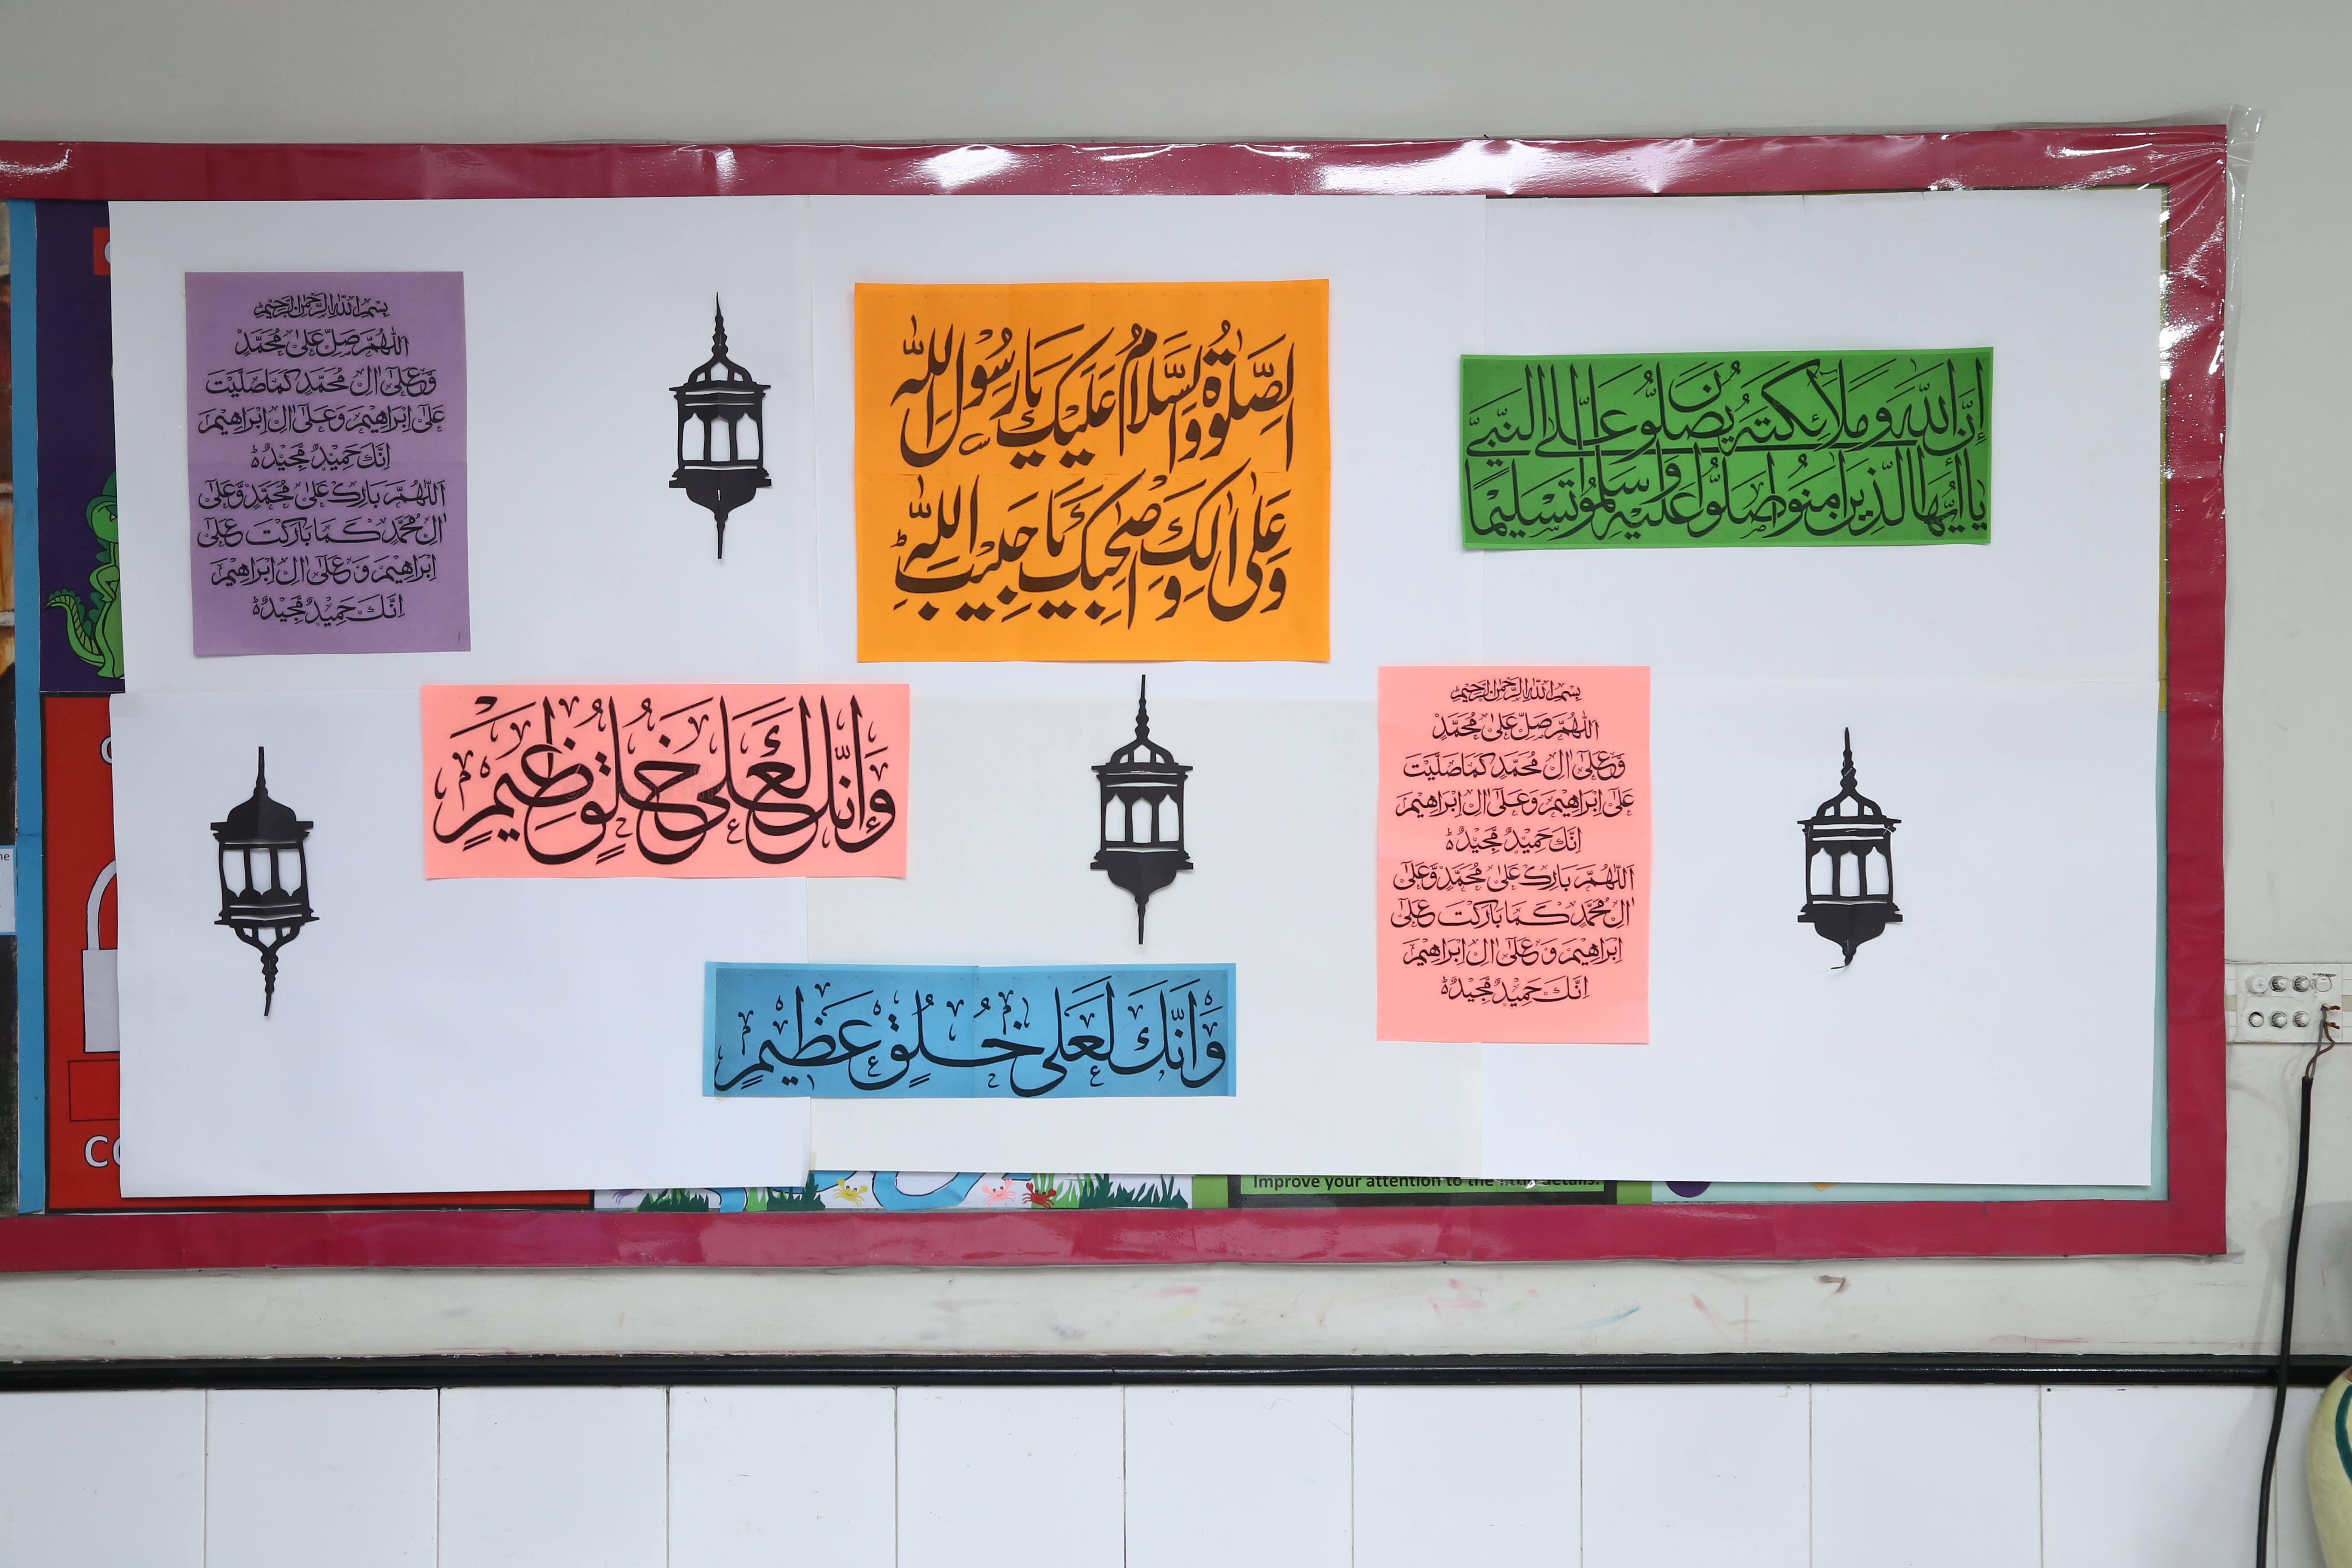 بسم الله الرحمن الرحيم
اللهم صل على محمد
وعلى ال محمد كما صليت
على ابراهيم وعلى ال ابراهيم
انك حميد مجيد
اللهم بارك على محمد وعلى
ال محمد كما باركت على
ابراهيم وعلى ال ابراهيم
انك حميد مجيد
الصلوة والسلام عليك يا رسول الله
وعلى الك واصحبك يا حبيب الله
إن الله وملائكته يصلون على النبي
يا ايها الذين امنوا صلوا عليه وسلموا تسليما
وانك لعلى خلق عظيم
بسم الله الرحمن الرحيم
اللهم صل على محمد
وعلى ال محمد كما صليت
على ابراهيم وعلى ال ابراهيم
انك حميد مجيد
اللهم بارك على محمد وعلى
ال محمد كما باركت على
ابراهيم وعلى ال ابراهيم
انك حميد مجيد
وانك لعلى خلق عظيم
Improve your attention to the little details.